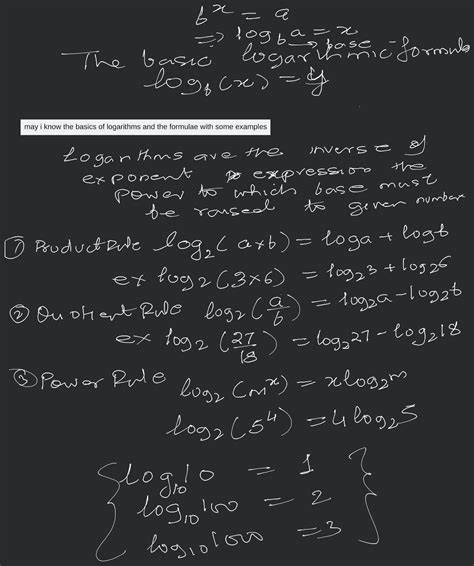 bˣ = a
⇒ log_b a = x
→ base
The basic logarithmic formula
log_b (x) = y
may i know the basics of logarithms and the formulae with some examples
Logarithms are the inverse of
exponent expression the
power to which base must
be raised to given number
① Product Rule log₂ (a×b) = log a + log b
ex log₂ (3×6) = log₂3 + log₂6
② Quotient Rule log₂ (a/b) = log₂a - log₂b
ex log₂ (27/18) = log₂27 - log₂18
③ Power Rule log₂ (mˣ) = x log₂m
log₂ (5⁴) = 4 log₂5
log₁₀10 = 1
log₁₀100 = 2
log₁₀1000 = 3